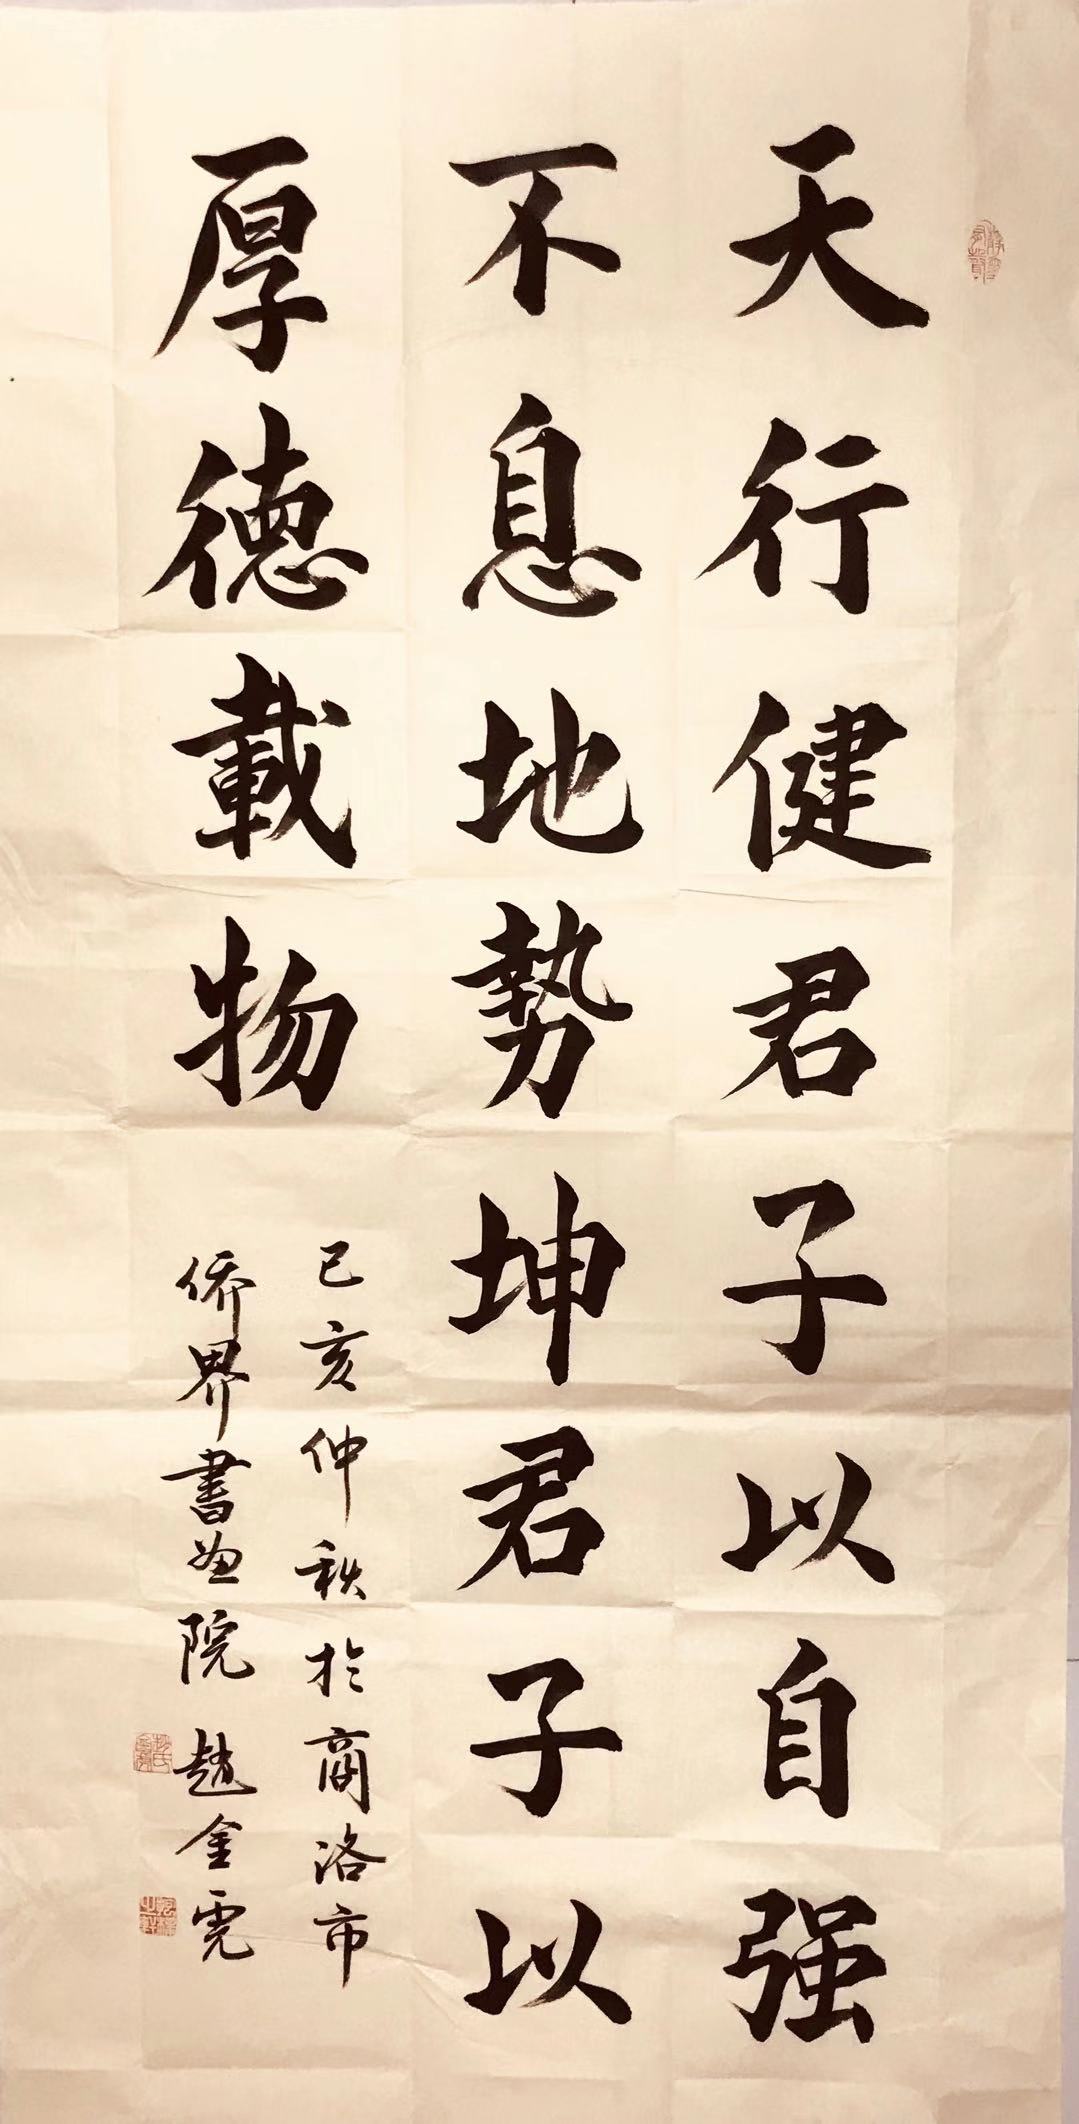 天行健君子以自强
不息地势坤君子以
厚德載物
己亥仲秋於商洛市
侨界書画院 趙金霓